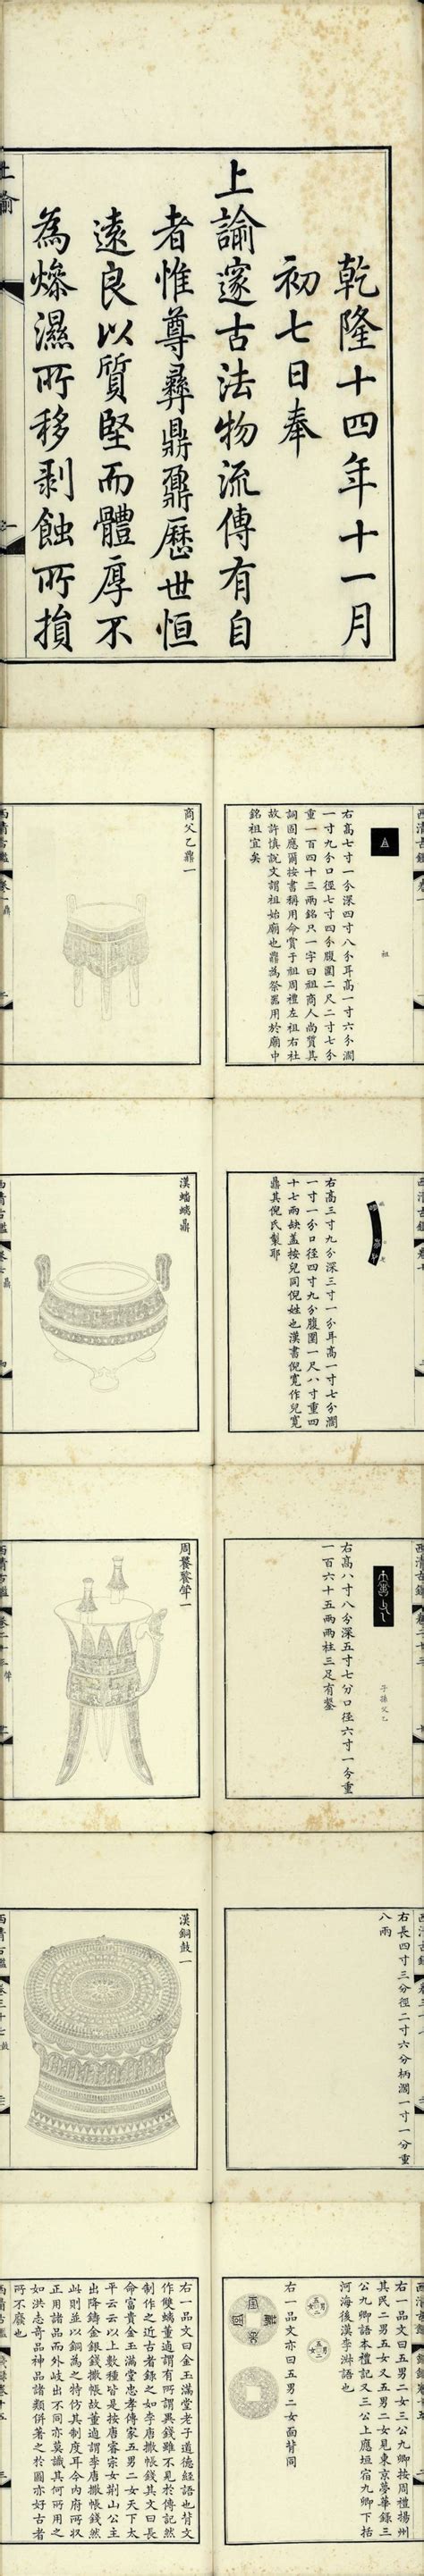 乾隆十四年十一月
初七日奉
上諭邃古法物流傳有自
者惟尊彝鼎鼐歷世恒
遠良以質堅而體厚不
為燥濕所移剥蝕所損
上諭
一
祖
右高七寸一分深四寸八分耳高一寸六分濶
一寸九分口徑七寸四分腹圍二尺二寸七分
重一百四十三兩銘只一字曰祖商人尚質其
詞固應爾按書稱用命賞于祖周禮左祖右社
故許慎說文謂祖始廟也鼎為祭器用於廟中
銘祖宜矣
商父乙鼎一
西清古鑑
卷一鼎
右高三寸九分深三寸一分耳高一寸七分濶
一寸一分口徑四寸九分腹圍一尺八寸重四
十七兩缺蓋按兒同倪姓也漢書倪寬作兒寬
鼎其倪氏製耶
漢蟠螭鼎
西清古鑑
卷七鼎
子孫父乙
右高八寸八分深五寸七分口徑六寸一分重
一百六十五兩兩柱三足有鋬
周饕餮斝一
西清古鑑
卷二十三斝
右長四寸三分徑二寸六分柄濶一寸一分重
八兩
漢銅鼓一
西清古鑑
卷三十七鼓
右一品文曰五男二女三公九卿按周禮揚州
其民二男五女又五男二女見東京夢華錄三
公九卿語本禮記又三公上應垣宿九卿下括
河海後漢李淋語也
右一品文亦曰五男二女面背同
右一品文曰金玉滿堂老子道德經語也背文
作雙螭董逌謂有所謂異錢雖不見於傳記然
制作之近古者錄之如李唐撒帳錢其文曰長
命富貴金玉滿堂忠孝傳家五男二女天下太
平云云以上數種皆是按唐睿宗女荊山公主
出降鑄金銀錢撒帳故董逌謂李唐撒帳錢然
此則並以銅為之特仿其制度耳今內府所收
正用諸品而外岐出不同亦莫識其何所用之
如洪志奇品神品諸類併著之於圖亦好古者
所不廢也